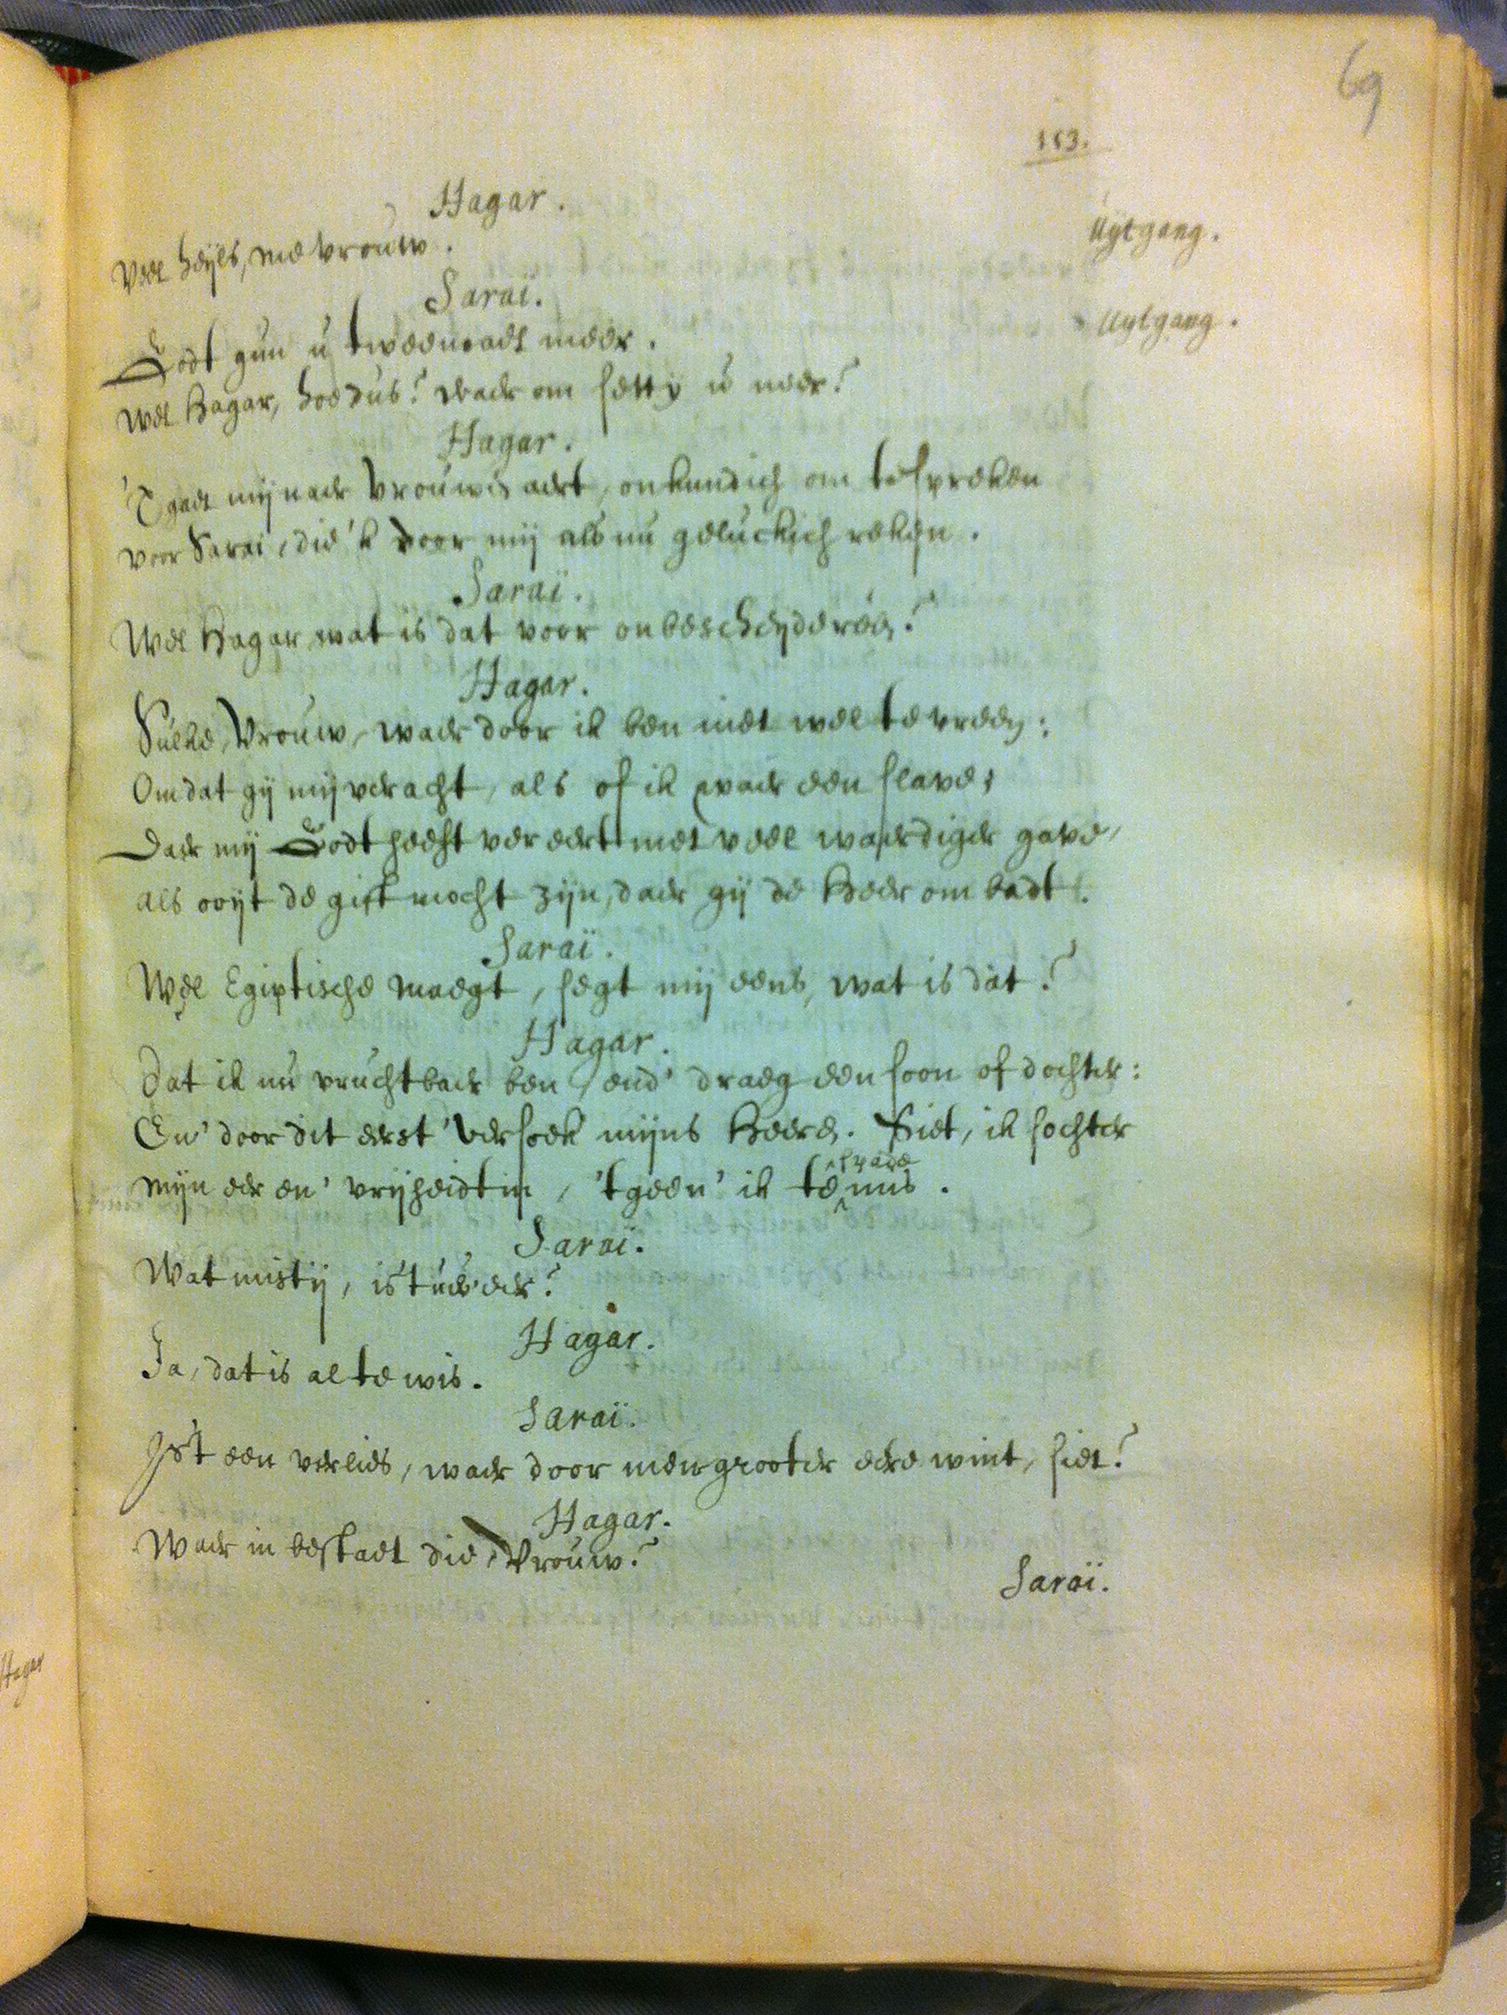 69
153.
Hagar.
Uytgang.
Veel heyls, me vrouw.
Sarai.
Uytgang.
Godt gun u tweemael meer.
Wel Hagar, hoe dus? waer om setty u neer?
Hagar.
'T gaet mij naer Vrouwen aert, onkundich om te spreken
voor Sarai, die 'k voor mij als nu geluckich reken.
Saraï.
Wel Hagar wat is dat voor onbescheyde reên?
Hagar.
Sulke, Vrouw, waer door ik ben niet wel te vreen:
Omdat gij mij veracht, als of ik waer een slave,
Daer mij Godt heeft vereert met veel waerdiger gave,
als ooyt de gift mocht zijn, daer gij de Heer om badt.
Saraï.
Wel Egiptische maegt, segt mij eens, wat is dat?
Hagar.
Dat ik nu vruchtbaer ben, end' draeg een soon of dochter:
En' door dit eerst versoek mijns Heere. Siet, ik sochter
mijn eer en' vrijheidt in, 't geen' ik te spade mis.
Saraï.
Wat mistij, is't uw' eer?
Hagar.
Ja, dat is al te wis.
Saraï.
Is't een verlies, waer door men grooter eere wint, siet?
Hagar.
Waer in bestaet die, Vrouw?
Saraï.
Hagar